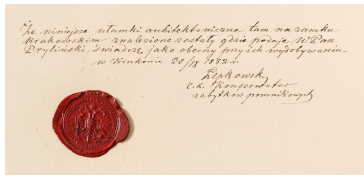 Że niniejsze ułamki architektoniczne tam na zamku
krakowskim znalezione zostały gdzie podaje WPan
Pryliński, świadczę jako obecny przy ich wydobywaniu.
w Krakowie 20/IX 1882 r.
Łepkowski
c. k. Konserwator
zabytków pomnikowych